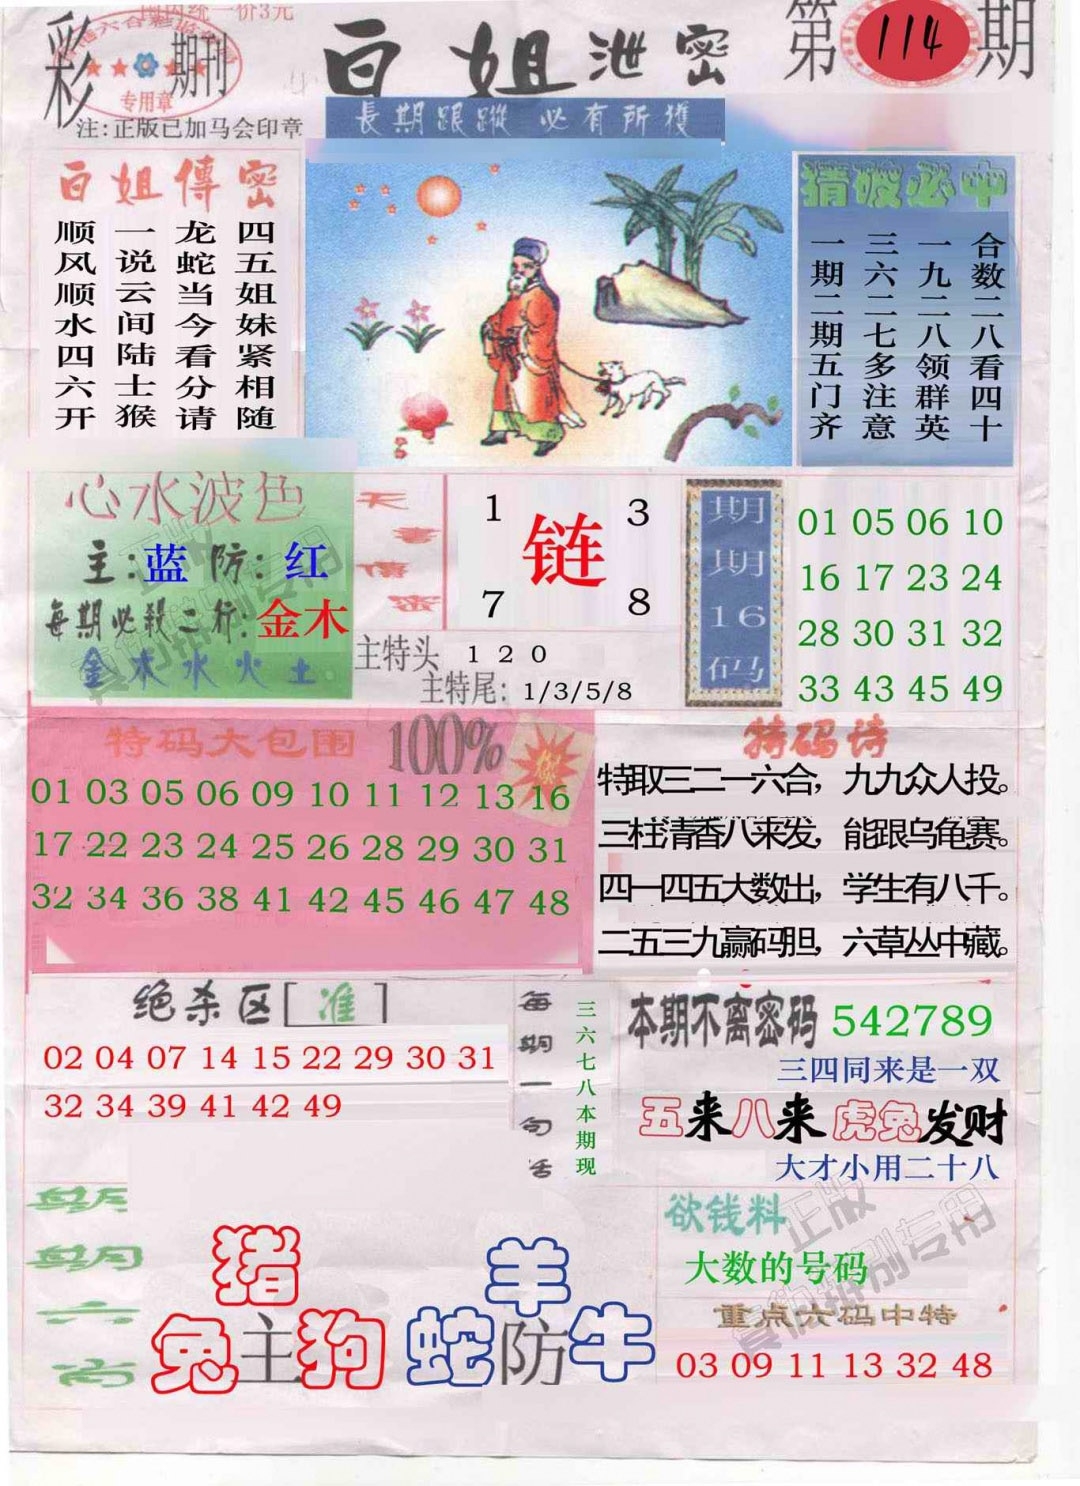 国内统一价3元
彩
期刊
专用章
注:正版已加马会印章
白姐泄密
第114期
長期跟蹤 必有所獲
白姐傳密
四五姐妹紧相随
龙蛇当今看分请
一说云间陆士猴
顺风顺水四六开
猜破必中
合数二八看四十
一九二八领群英
三六二七多注意
一期二期五门齐
心水波色
主:蓝 防:红
每期必殺二行:金木
金木水火土
天書傳密
1 3
链
7 8
主特头 1 2 0
主特尾: 1/3/5/8
期期16码
01 05 06 10
16 17 23 24
28 30 31 32
33 43 45 49
特码大包围 100%
01 03 05 06 09 10 11 12 13 16
17 22 23 24 25 26 28 29 30 31
32 34 36 38 41 42 45 46 47 48
特码诗
特取三二一六合，九九众人投。
三柱清香八来发，能跟乌龟赛。
四一四五大数出，学生有八千。
二五三九赢码胆，六草丛中藏。
绝杀区[准]
02 04 07 14 15 22 29 30 31
32 34 39 41 42 49
每期一句话
三六七八本期现
本期不离密码 542789
三四同来是一双
五来八来 虎兔发财
大才小用二十八
期期六肖
猪
兔主狗
羊
蛇防牛
欲钱料
大数的号码
重点六码中特
03 09 11 13 32 48